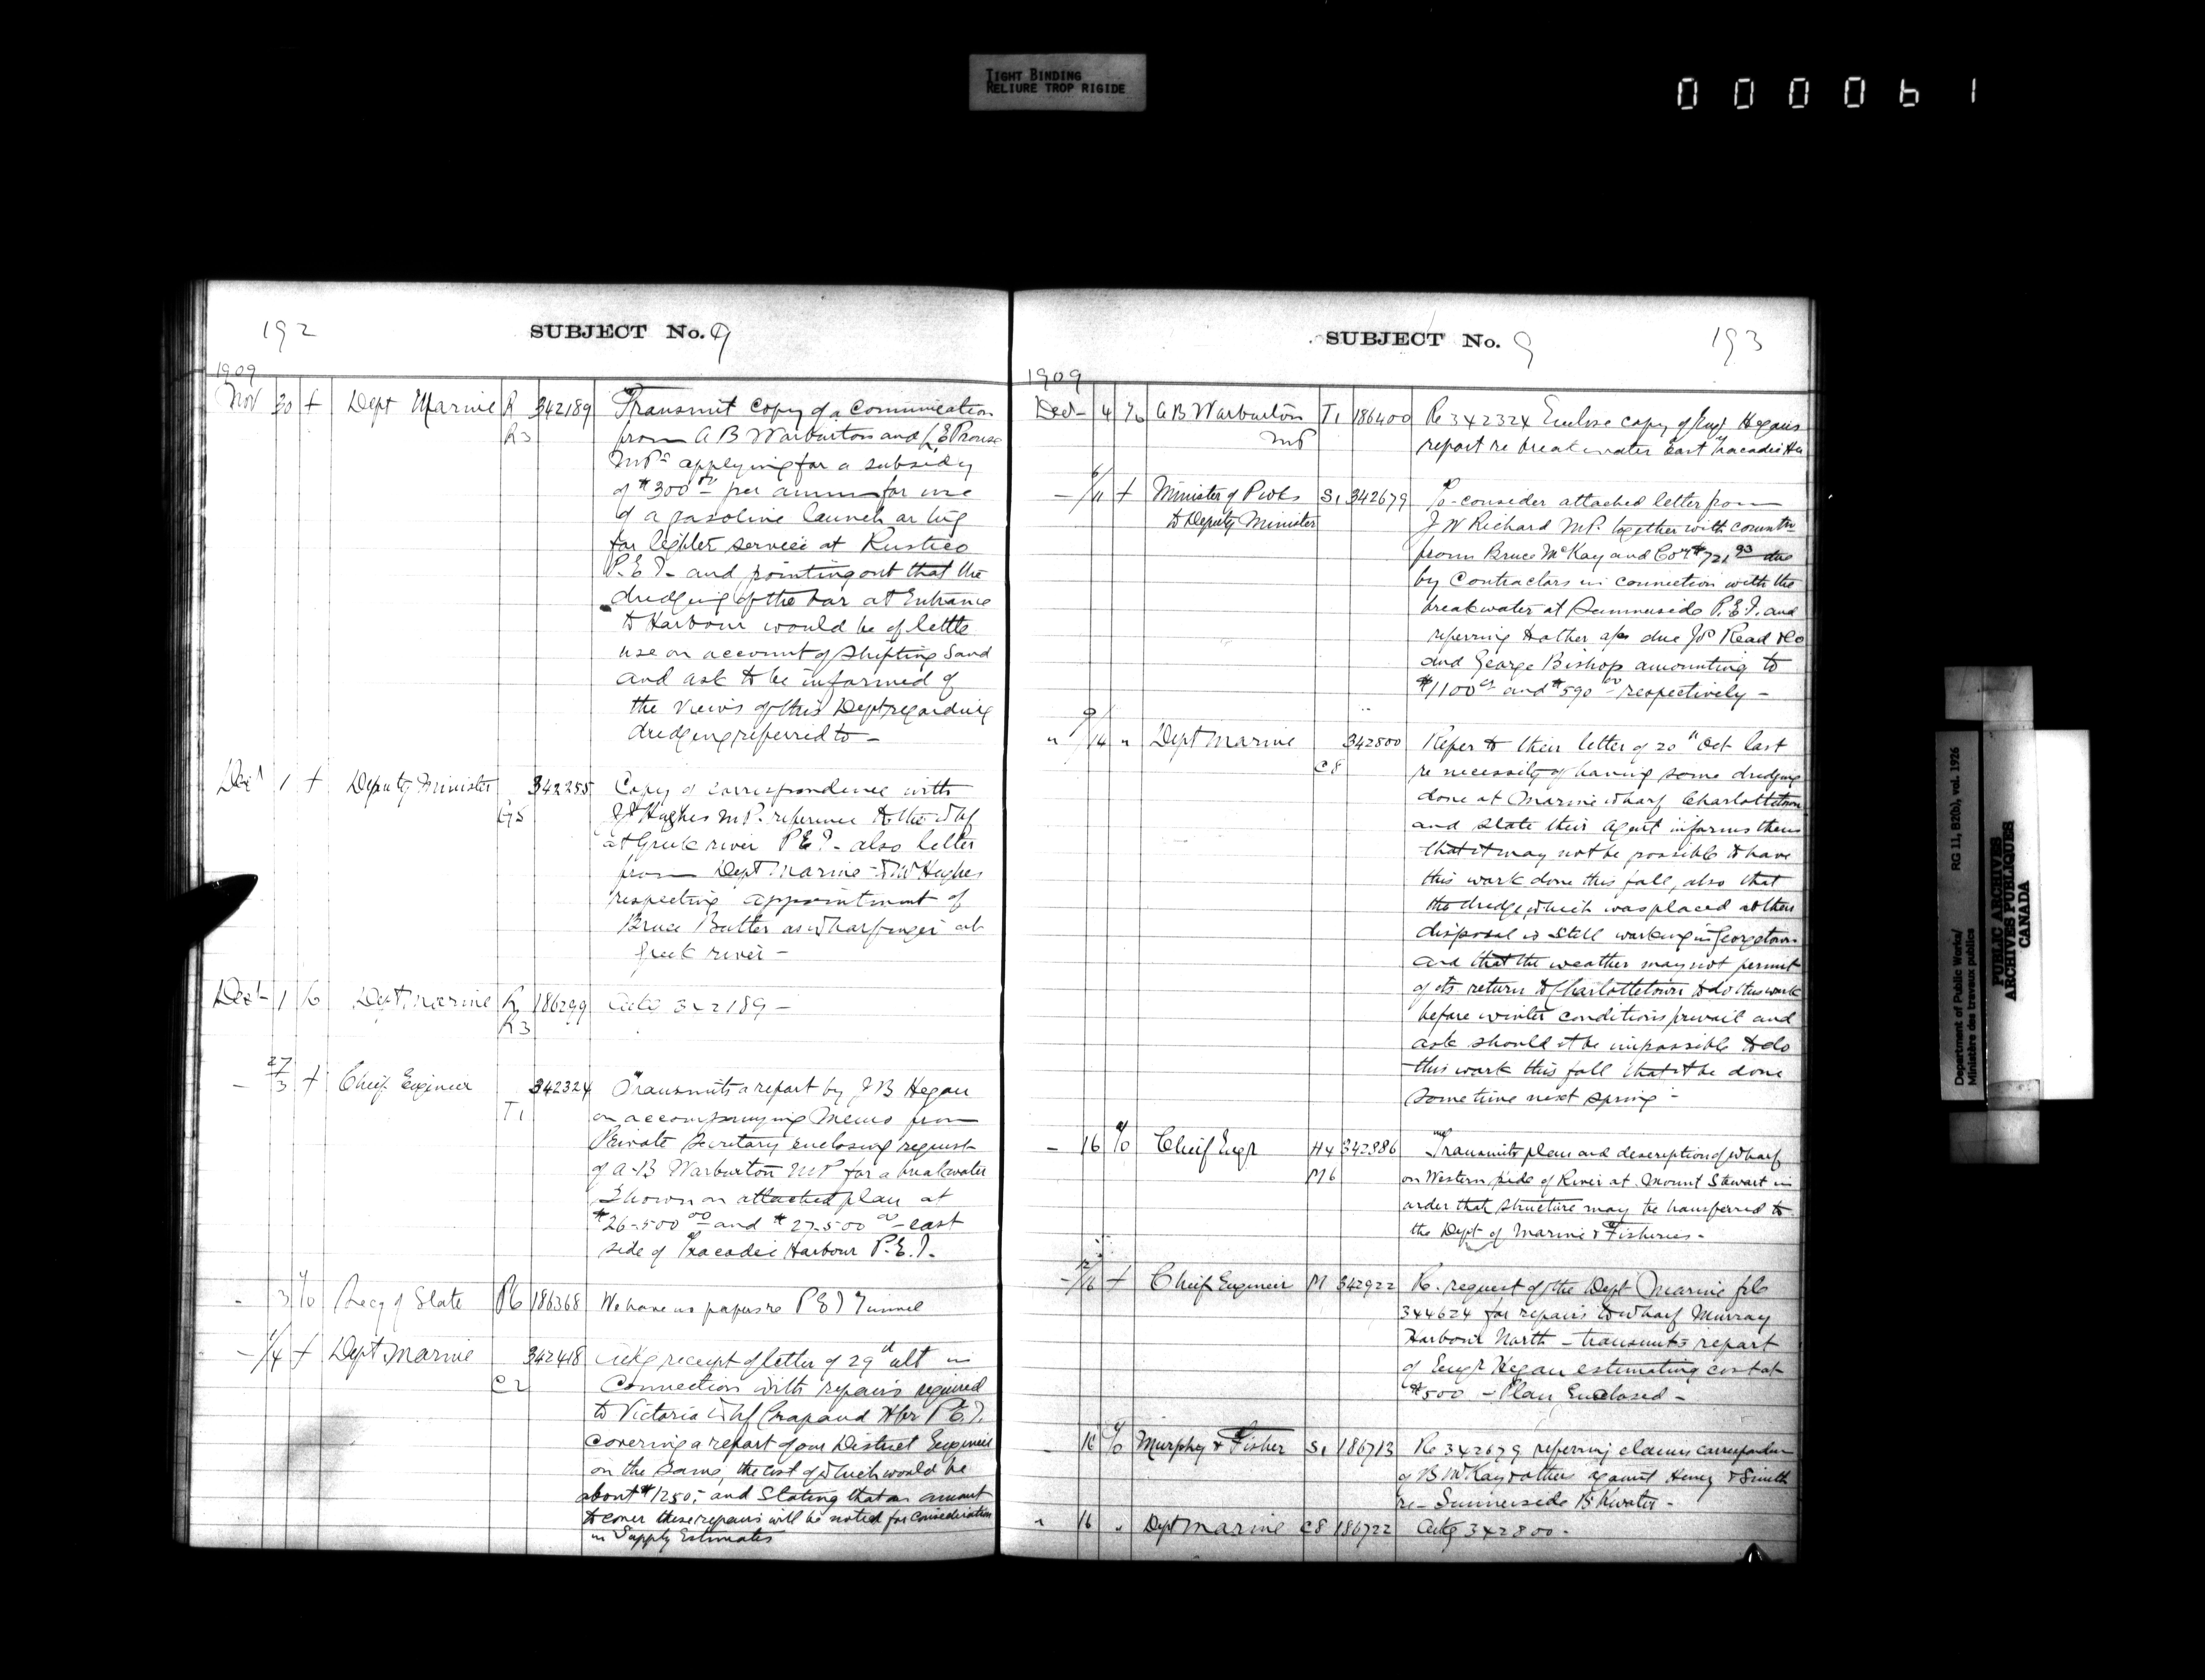 TIGHT BINDING
RELIURE TROP RIGIDE
000061
192
SUBJECT No. 9
1909
Nov 30 f Dept Marine R 342189 Transmit copy of a communication
R3 from A B Warburton and L E Prowse
MPs applying for a subsidy
of $300 00 per annum for use
of a gasoline launch or tug
for lighter service at Rustico
P.E.I. and pointing out that the
dredging of the bar at Entrance
to Harbour would be of little
use on account of shifting sand
and ask to be informed of
the views of this Dept regarding
dredging referred to -
Dec 1 f Deputy Minister 342255 Copy of correspondence with
G5 Hughes M.P. reference to the Whf
at river P.E.I. also letter
from Dept Marine to Mr Hughes
respecting appointment of
Bruce Butler as Wharfinger at
river -
Dec 1 To Dept Marine R 186299 Ackg 342189 -
R3
- 27/3 f Chief Engineer 342324 Transmits a report by J B Hegan
T1 on accompanying Memo from
Private Secretary enclosing request
of A.B Warburton MP for a breakwater
Shown on attached plan at
$26.500 00 and $27.500 00 - east
side of Tracadie Harbour P.E.I.
- 3 To Secy of State P6 186368 We have no papers re P E I Tunnel
- 1/4 f Dept Marine 342418 Ackg receipt of letter of 29th ult in
C2 Connection with repairs required
to Victoria Whf Crapaud Hbr P.E.I.
covering a report of our District Engineer
on the same, the cost of which would be
about $1250; and Stating that an amount
to cover these repairs will be noted for consideration
in Supply Estimates
SUBJECT No. 9
193
1909
Dec - 4 To A B Warburton T1 186400 Re 342324 Enclose copy of Engr Hegans
MP report re breakwater East Tracadie Hr
- 6/11 f Minister of P Wks S1 342679 To consider attached letter from
to Deputy Minister J W Richard MP. together with
from Bruce McKay and Co re $721 93 due
by Contractors in connection with the
breakwater at Summerside P.E.I. and
referring to other a/cs due Read & Co
and George Bishop amounting to
$1100 00 and $590 00 respectively -
" 9/14 " Dept Marine 342800 Refer to their letter of 20" Oct last
C8 re necessity of having some dredging
done at Marine Wharf Charlottetown
and state their agent informs them
that it may not be possible to have
this work done this fall, also that
the dredge which was placed at their
disposal is still working in Georgetown
and that the weather may not permit
of its return to Charlottetown to do this work
before winter conditions prevail and
ask should it be impossible to do
this work this fall that it be done
some time next spring -
- 16 To Chief Engr H4 342886 Transmits plan and description of wharf
M6 on Western side of River at Mount Stewart in
order that structure may be transferred to
the Dept of Marine & Fisheries -
- 12/16 f Chief Engineer M 342922 Re. request of the Dept Marine file
344624 for repairs to Wharf Murray
Harbour North - transmits report
of Engr Hegan estimating cost at
$500 - Plan Enclosed -
- 16 To Murphy & Fisher S1 186713 Re 342679 referring claims
of B McKay & others against Henry & Smith
re - Summerside Bkwater -
" 16 " Dept Marine C8 186722 Ackg 342800 -
Department of Public Works/
Ministère des travaux publics
RG 11, B2(b), vol. 1926
PUBLIC ARCHIVES
ARCHIVES PUBLIQUES
CANADA